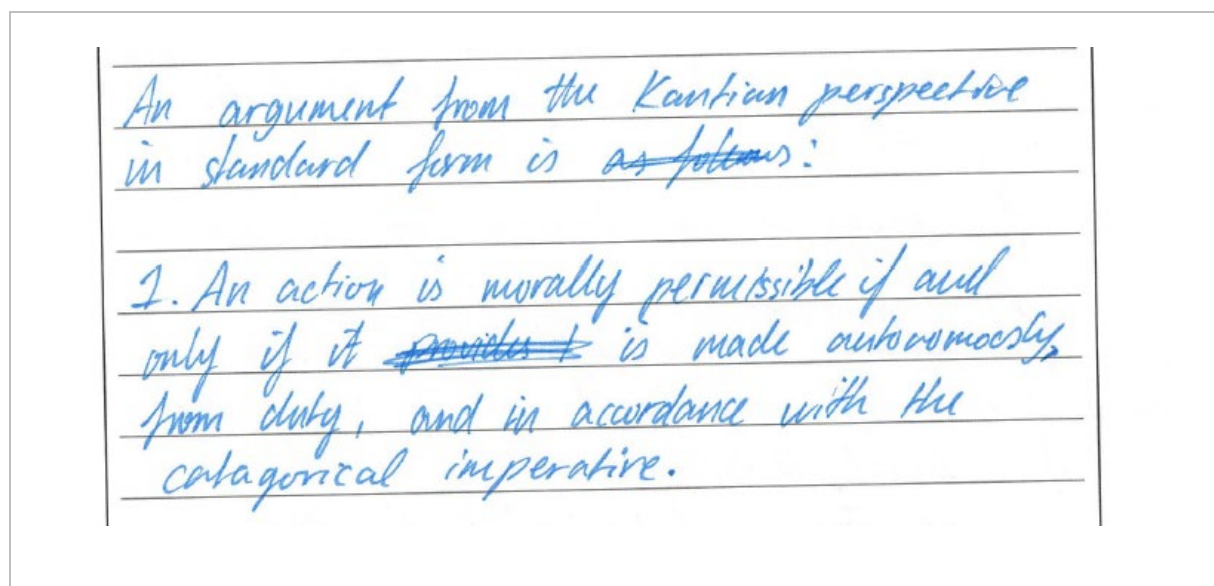 An argument from the Kantian perspective
in standard form is as follows:
1. An action is morally permissible if and
only if it provides t is made autonomously,
from duty, and in accordance with the
catagorical imperative.